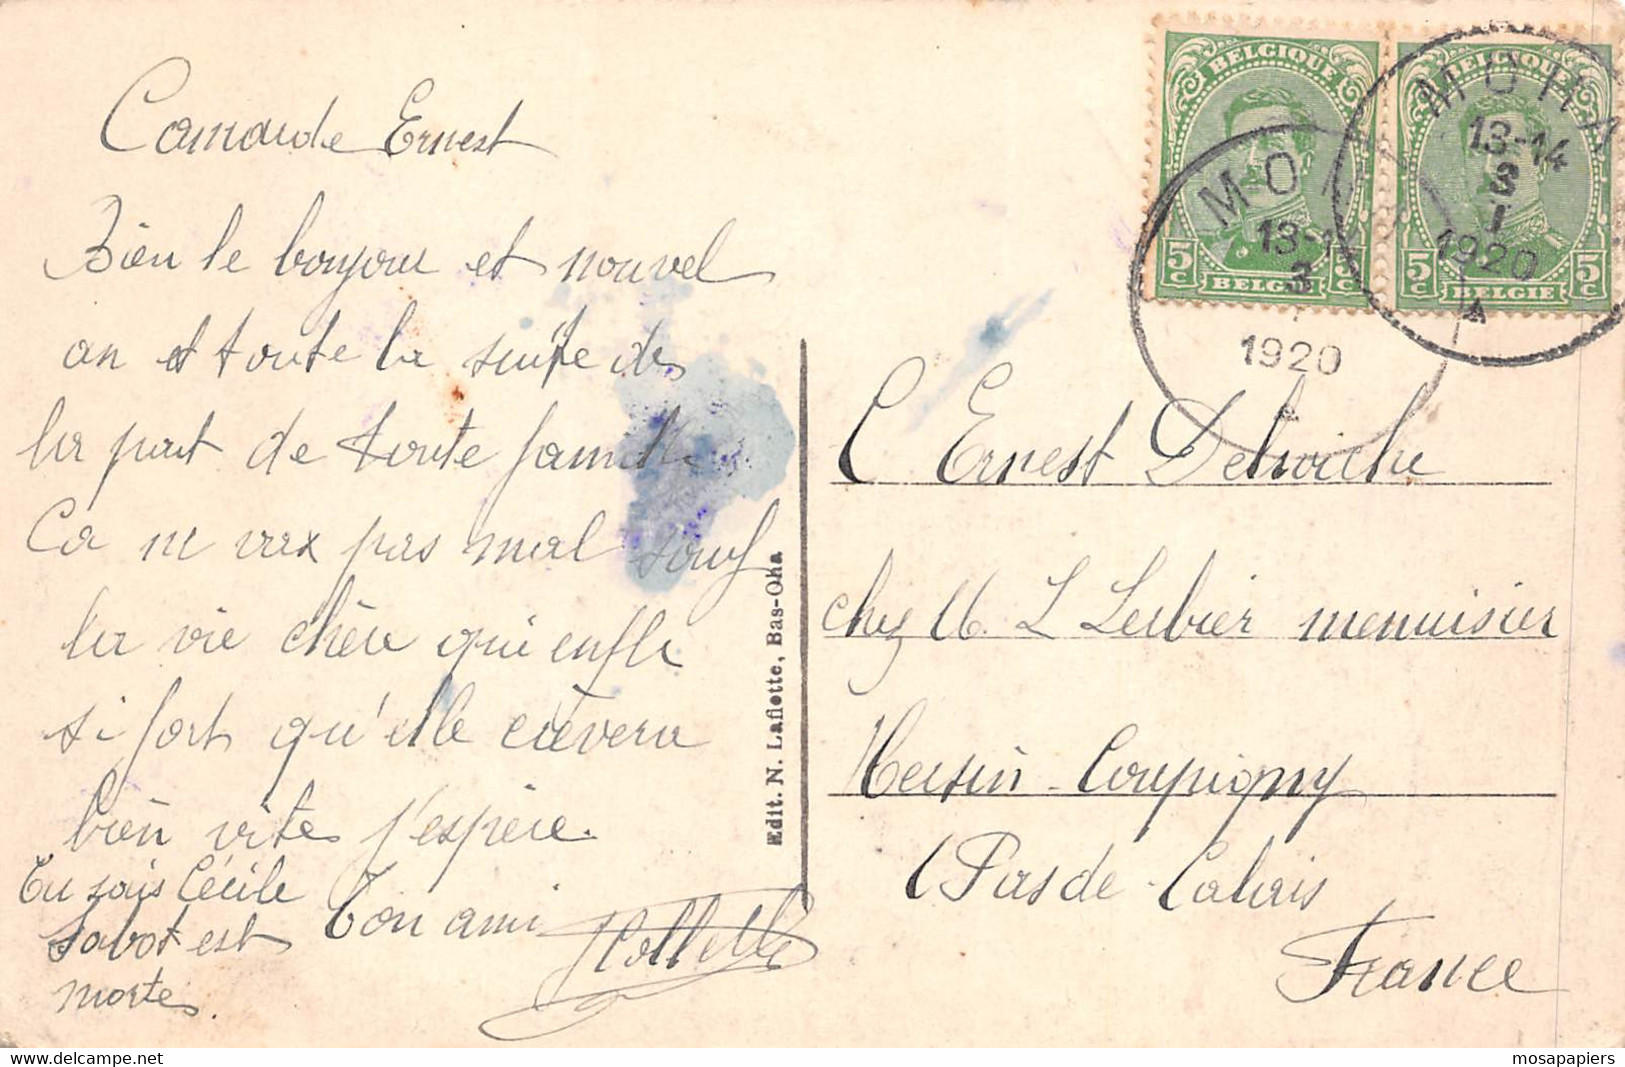 Camarade Ernest
Bien le bonjour et nouvel
an et toute la suite de
la part de toute famille
Ca ne vax pas mal sauf
la vie chère qui enfle
si fort qu'elle crèvera
bien vite j'espère.
Tu sais Cécile
Sabot est
morte.
Ton ami
Edit. N. Lafiotte, Bas-Oha
BELGIQUE
5c
5c
BELGIE
BELGIQUE
5c
5c
BELGIE
MOHA
13-14
3
1920
A
MOHA
13-14
3
1
1920
A
C Ernest Delwiche
chez M. L Lerbier menuisier
Hersin-Coupigny
(Pas de-Calais
France
mosapapiers